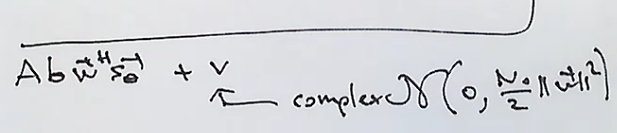 A b w⃗ᴴ s⃗_θ + v
complex 𝒩(0, N₀/2 ‖w⃗‖²)